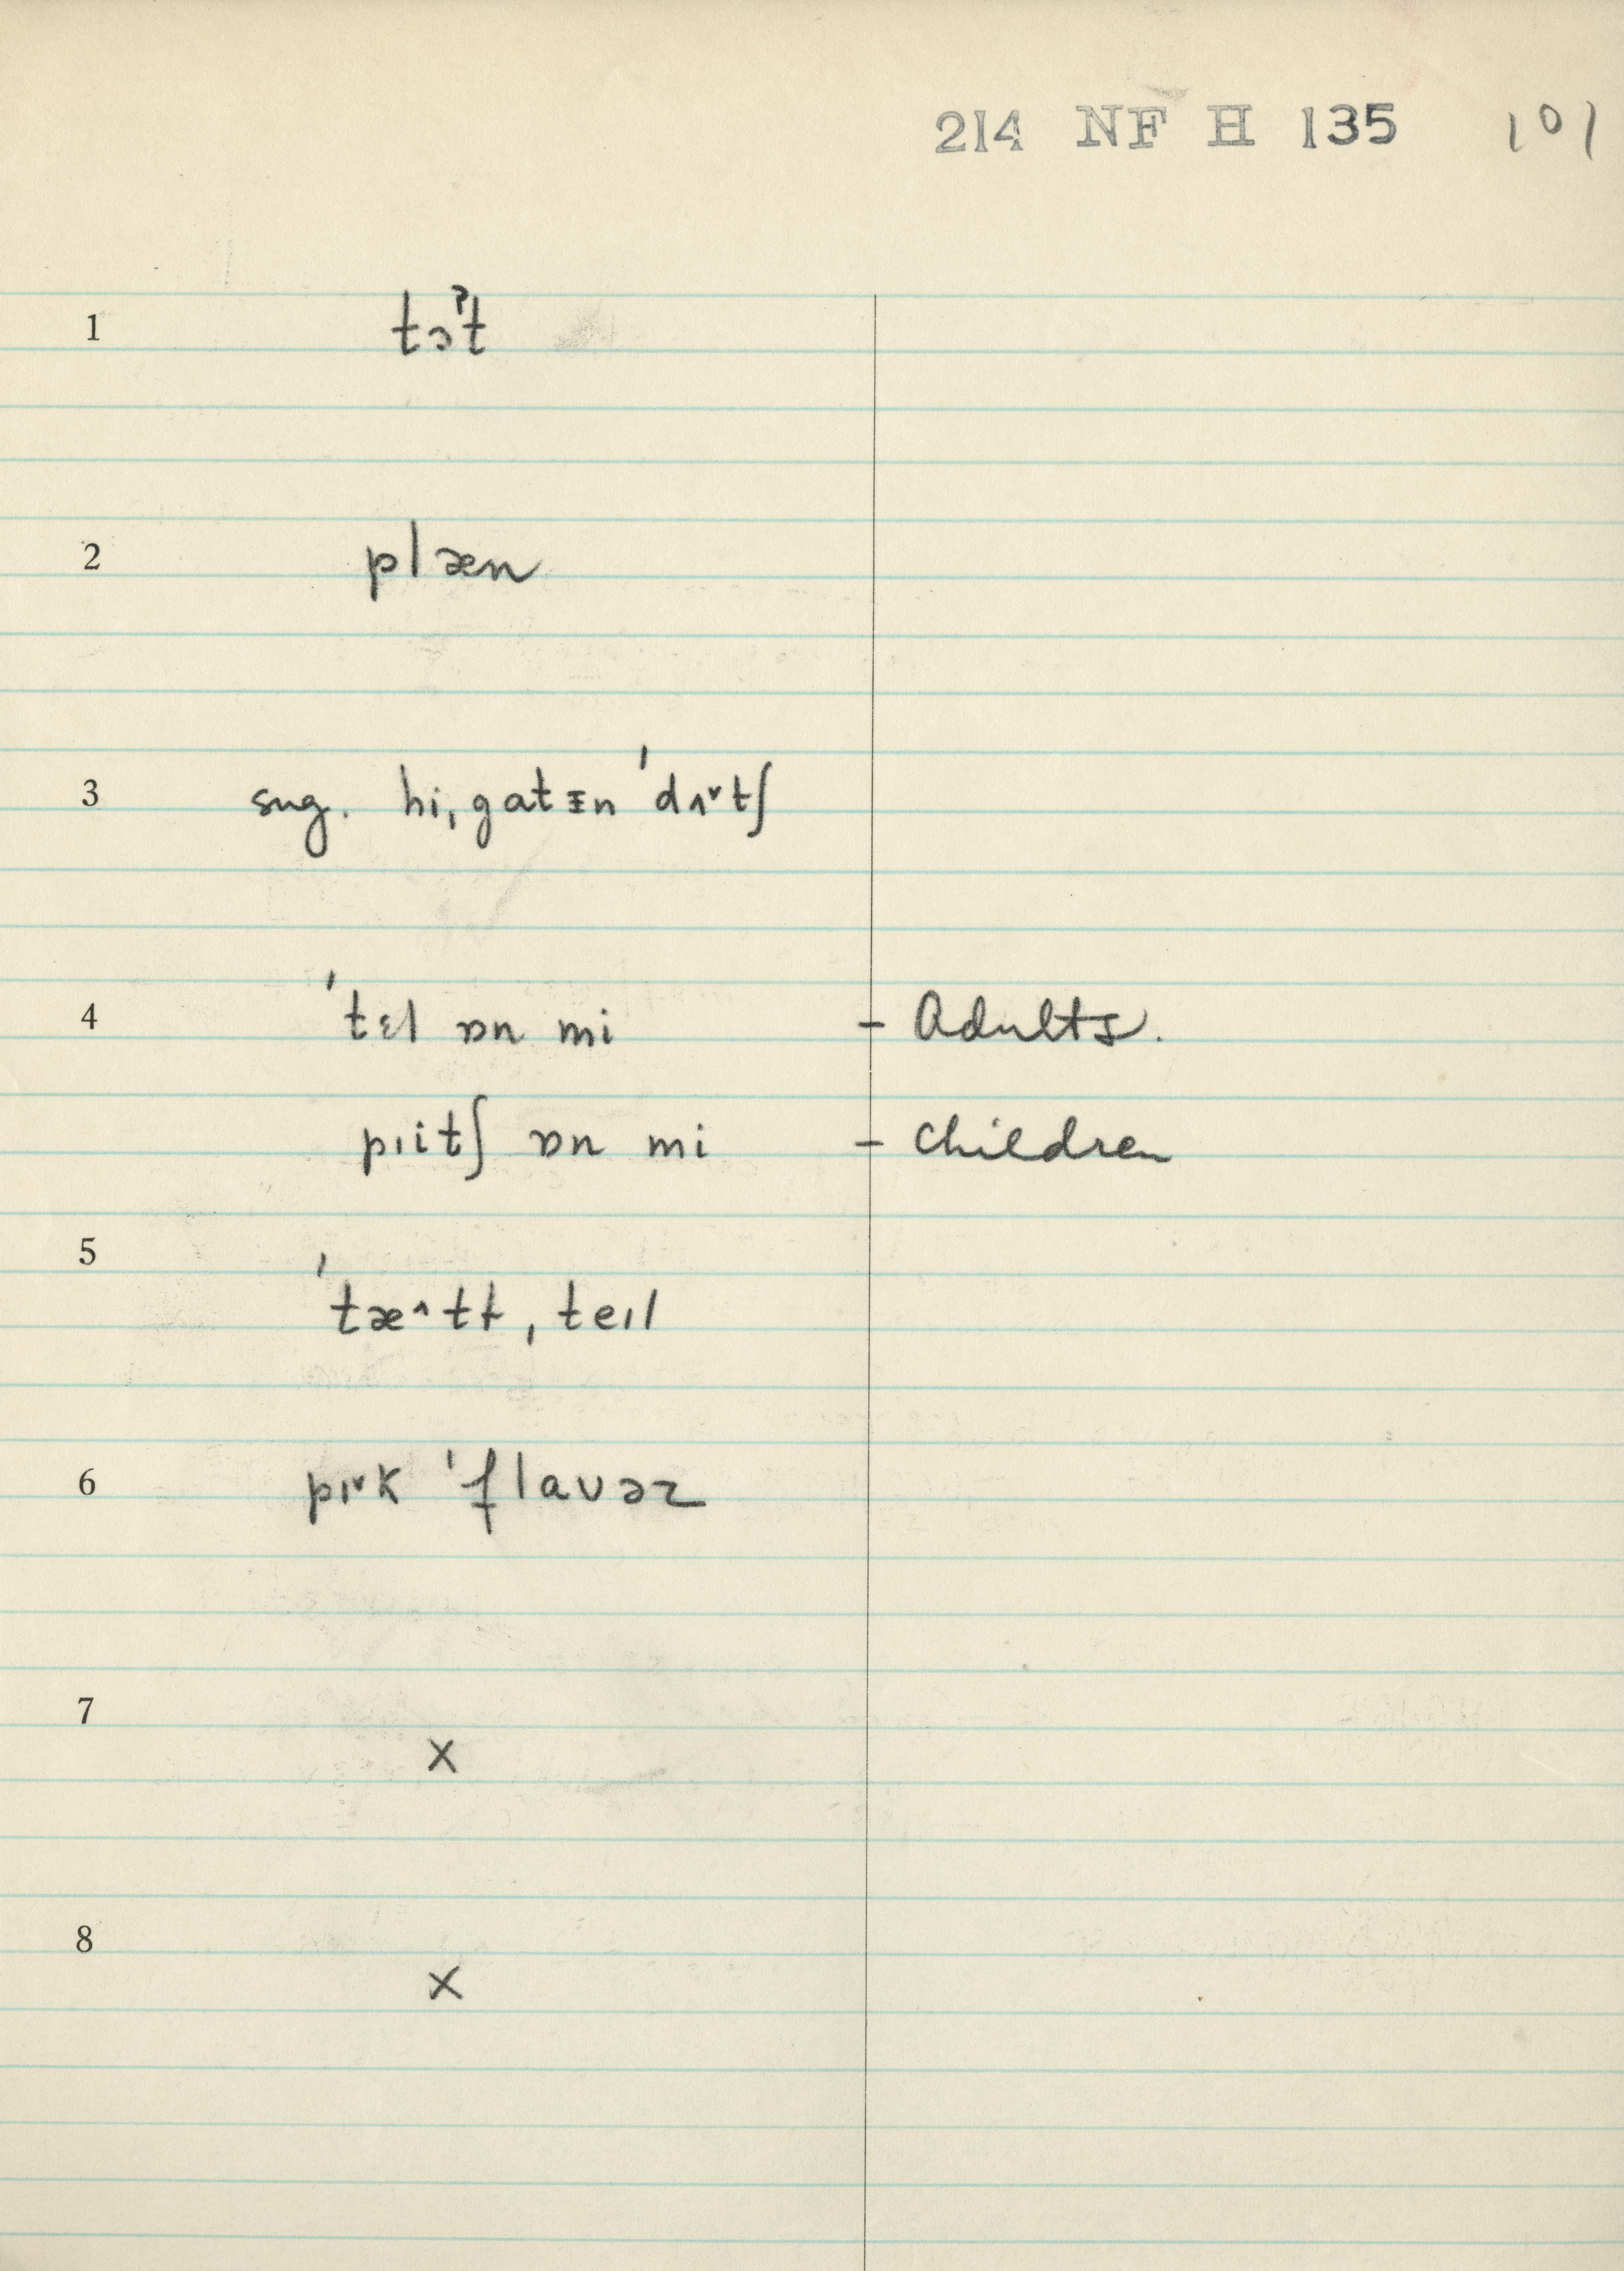 214 NF H 135 101
1 tɔˀt
2 plæn
3 sug. hi ˌgatɪn ˈdʌ˅tʃ
4 ˈtɛl ɒn mi - Adults.
pɪitʃ ɒn mi - children
5 ˈtæ^tt ˌteɪl
6 pɪ˅k ˈflaʊəz
7 x
8 x